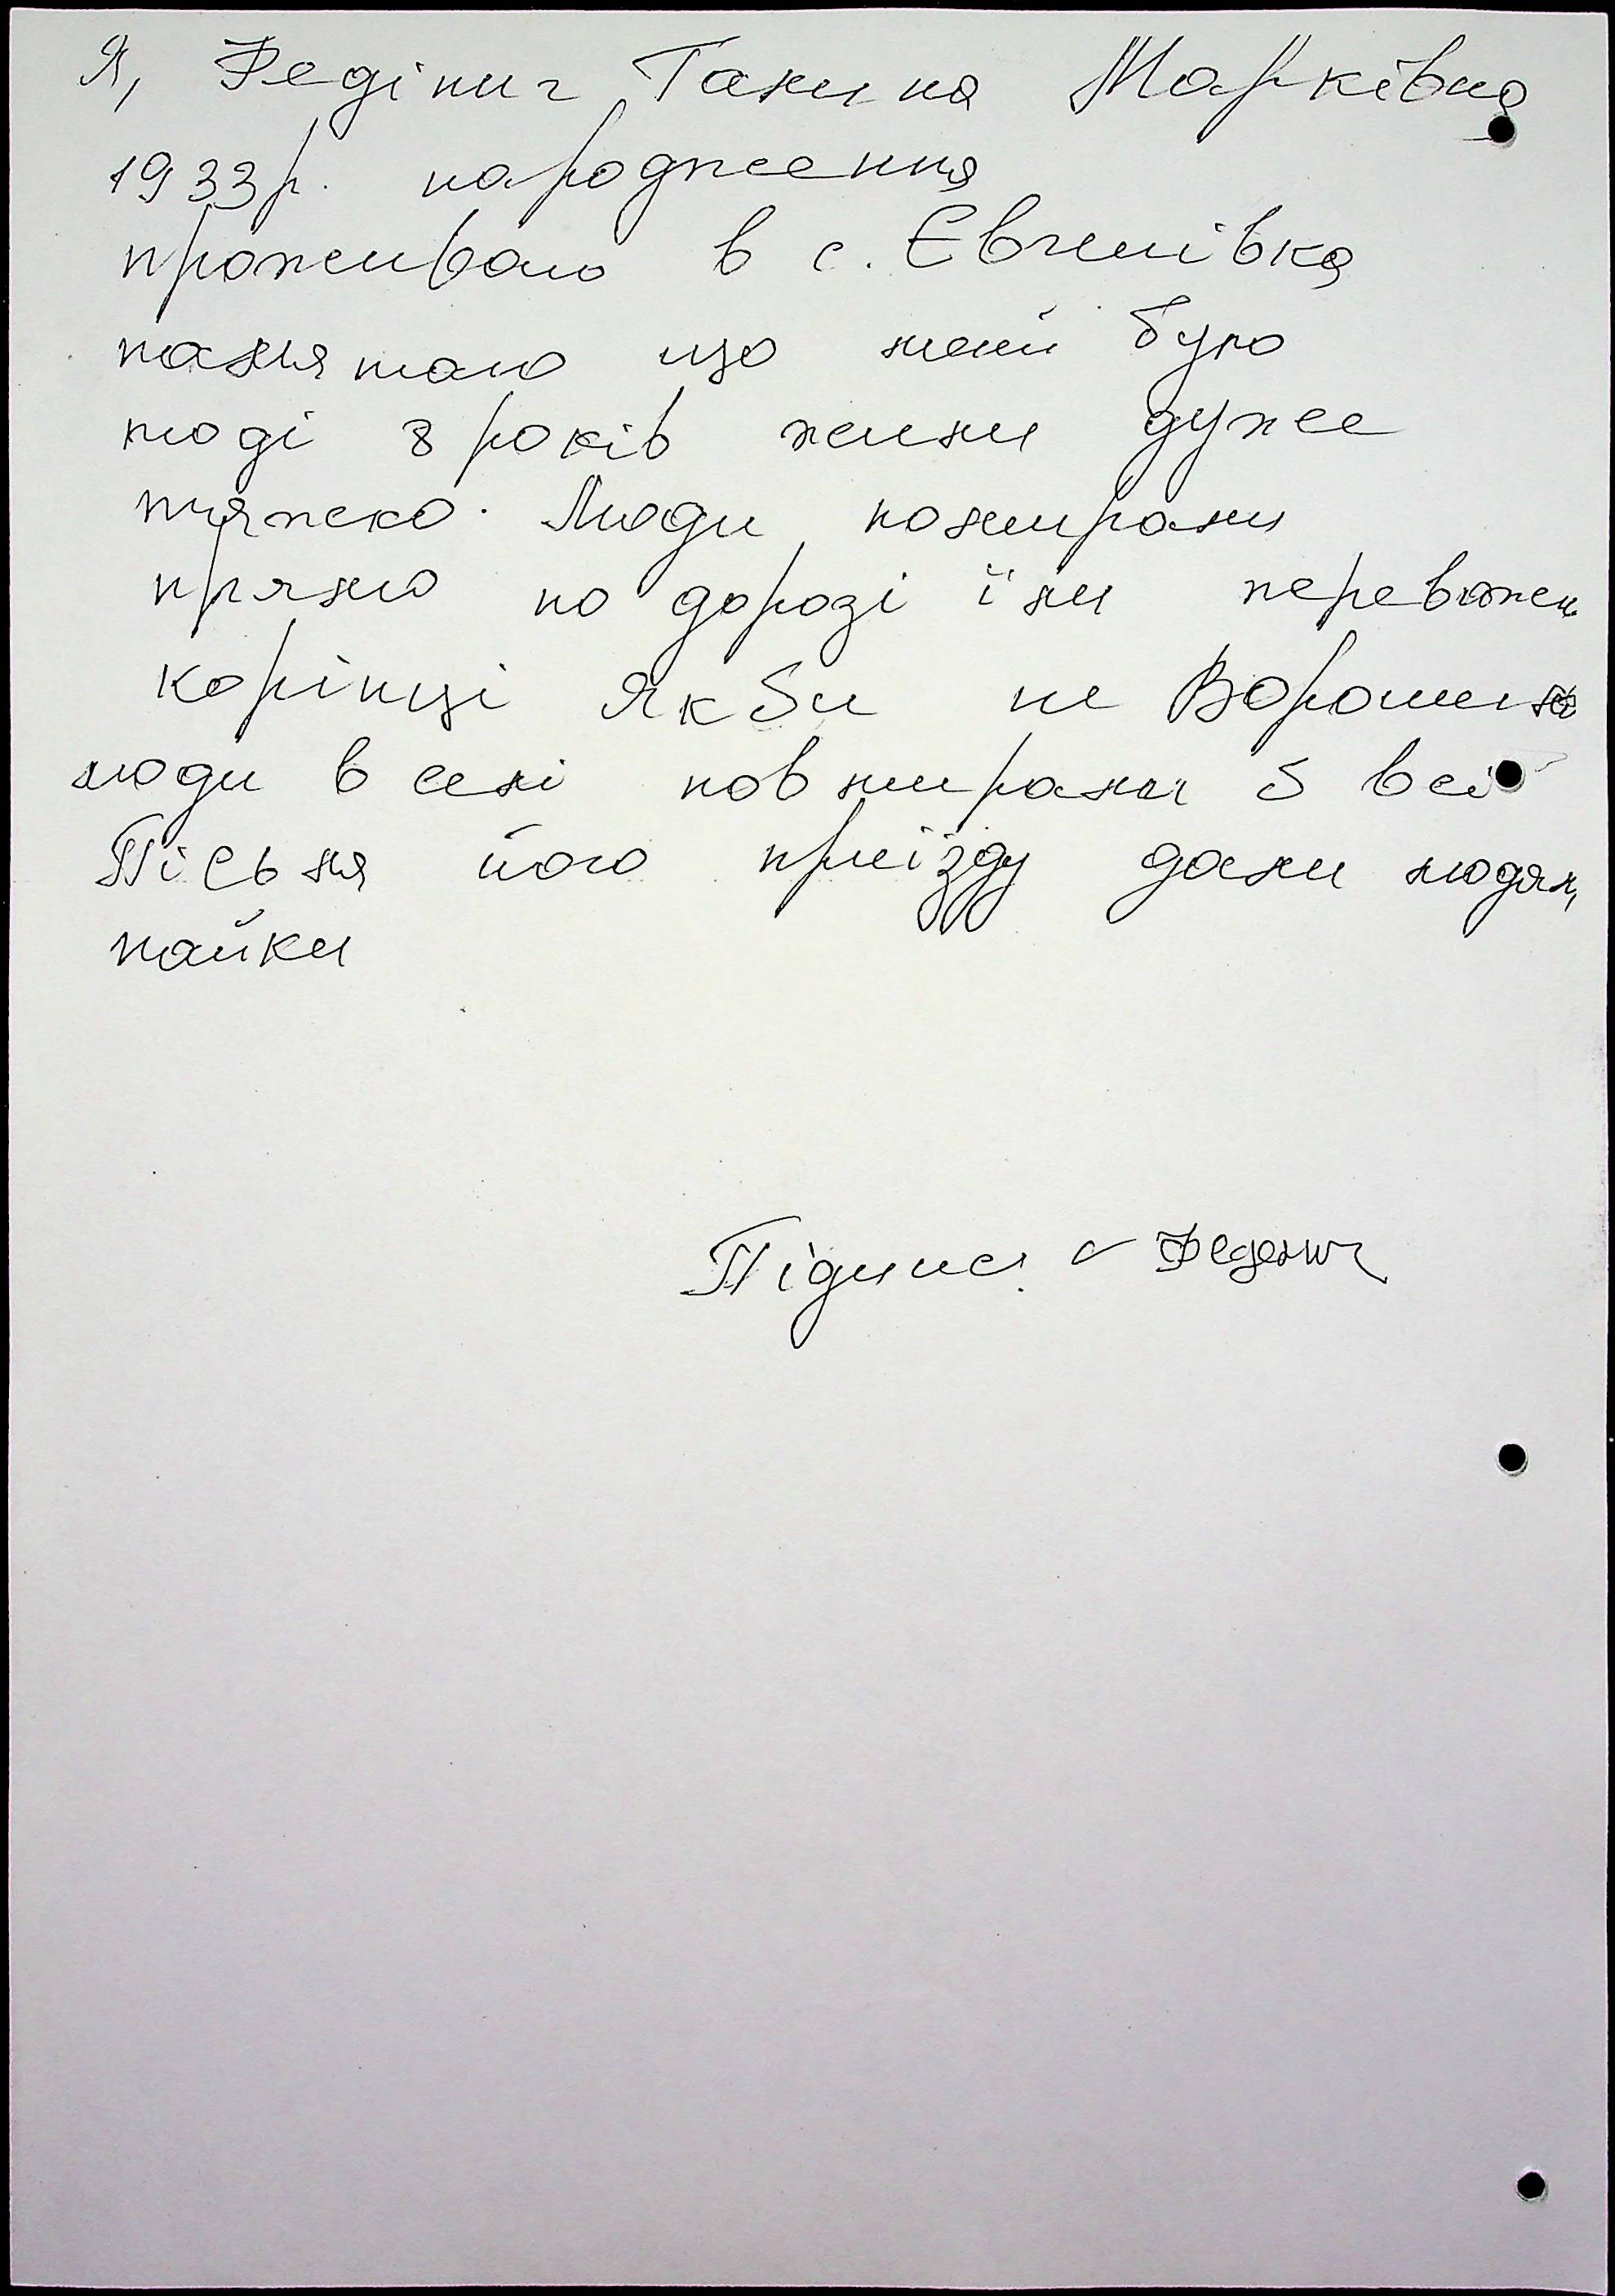 Я, Федінич Галина Марківна
1933р. народження
проживаю в с. Євгенівка
памятаю що мені було
тоді 8 років жили дуже
тяжко. Люди помирали
прямо по дорозі їли переважн
корінці Якби не Ворошил
люди в селі повмирали б всі
Пісьля його приїзду дали людям
пайки
Підпис.